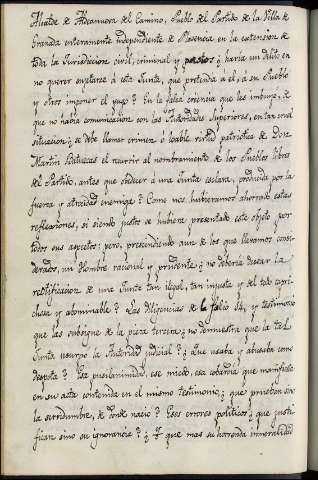 Alcalde de Aldeanueva del Camino, Pueblo del Partido de la Villa de
Granada enteramente independiente de Plasencia en la extension de
toda la Jurisdiccion civil, criminal y pastos ¿haria un delito en
no querer sugetarse á esta Junta, que pretendia á el, á su Pueblo
y otros imponer el yugo? En la falsa creencia que les imbuye, de
que no habia comunicacion con las Autoridades Superiores, en tan cruel
situacion ¿se debe llamar crimen ó loable virtud patriotica de Don
Martin Batuecas el recurrir al nombramiento de los Pueblos libres
del Partido, antes que obedecer á una Junta esclava, producida por la
fuerza y atrocidad enemiga? Como nos hubieramos ahorrado estas
reflexiones, si siendo justos se hubiera presentado este objeto por
todos sus aspectos; pero, prescindiendo aun de los que llevamos consi-
derados, un Hombre racional y prudente ¿no deberia desear la
rectificacion de una Junta tan ilegal, tan injusta y del todo capri-
chosa y abominable? Las diligencias de la folio 54, y testimonio
que las subsigue de la pieza tercera ¿no demuestra que la tal
Junta usurpo la Autoridad judicial? ¿Que usaba y abusaba como
despota? Esa pusilanimidad, ese miedo, esa cobardia que manifiesta
en su acta contenida en el mismo testimonio; que prueban son
la servidumbre, de donde nacio? Esos errores politicos ¿que justi-
fican sino su ignorancia? ¿Y que mas su horrenda inmoralidad